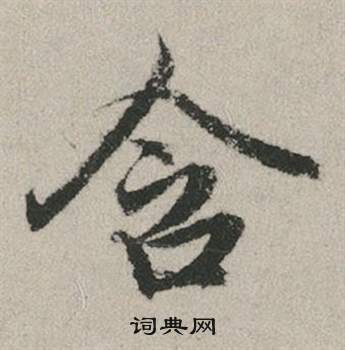 含
词典网